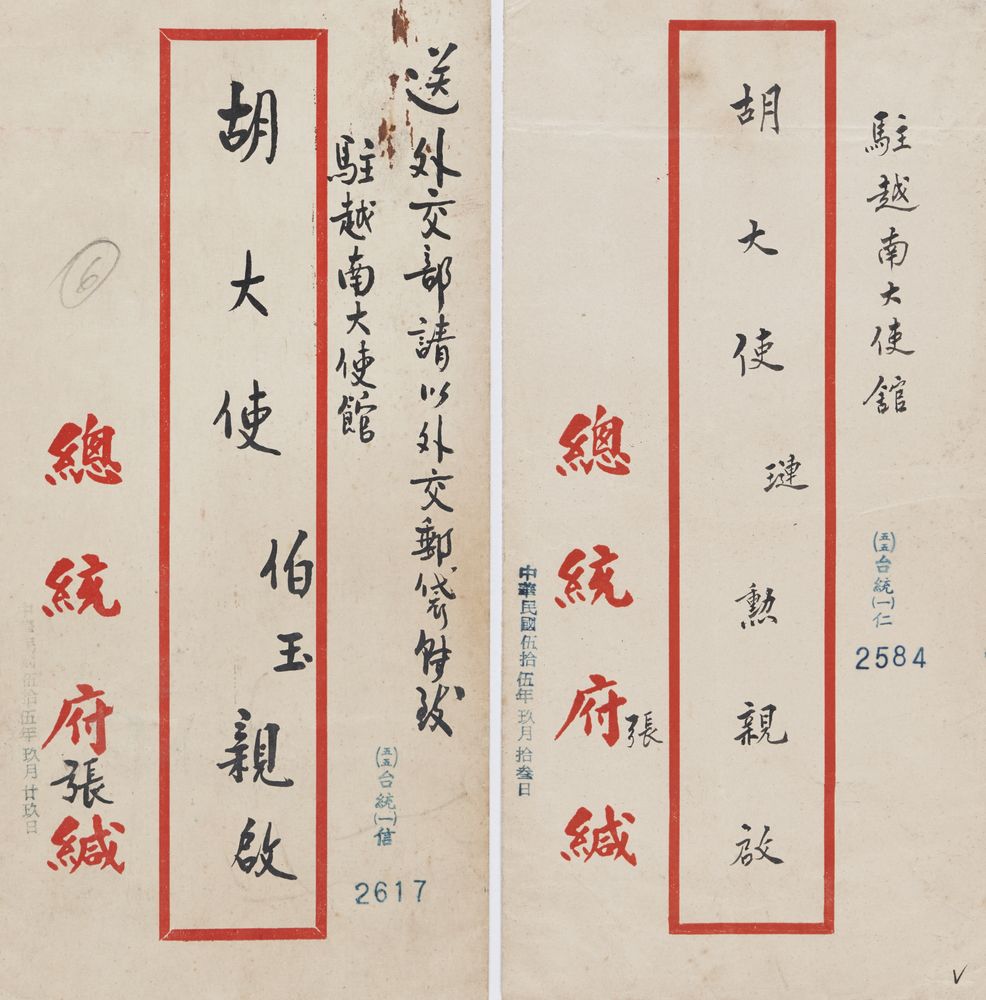 駐越南大使館
㊄㊄台統㈠仁
2584
胡大使璉勳親啟
總統府張緘
中華民國伍拾伍年玖月拾叁日
送外交部請以外交郵袋致
駐越南大使館
㊄㊄台統㈠信
2617
胡大使伯玉親啟
總統府張緘
中華民國伍拾伍年玖月廿玖日
6